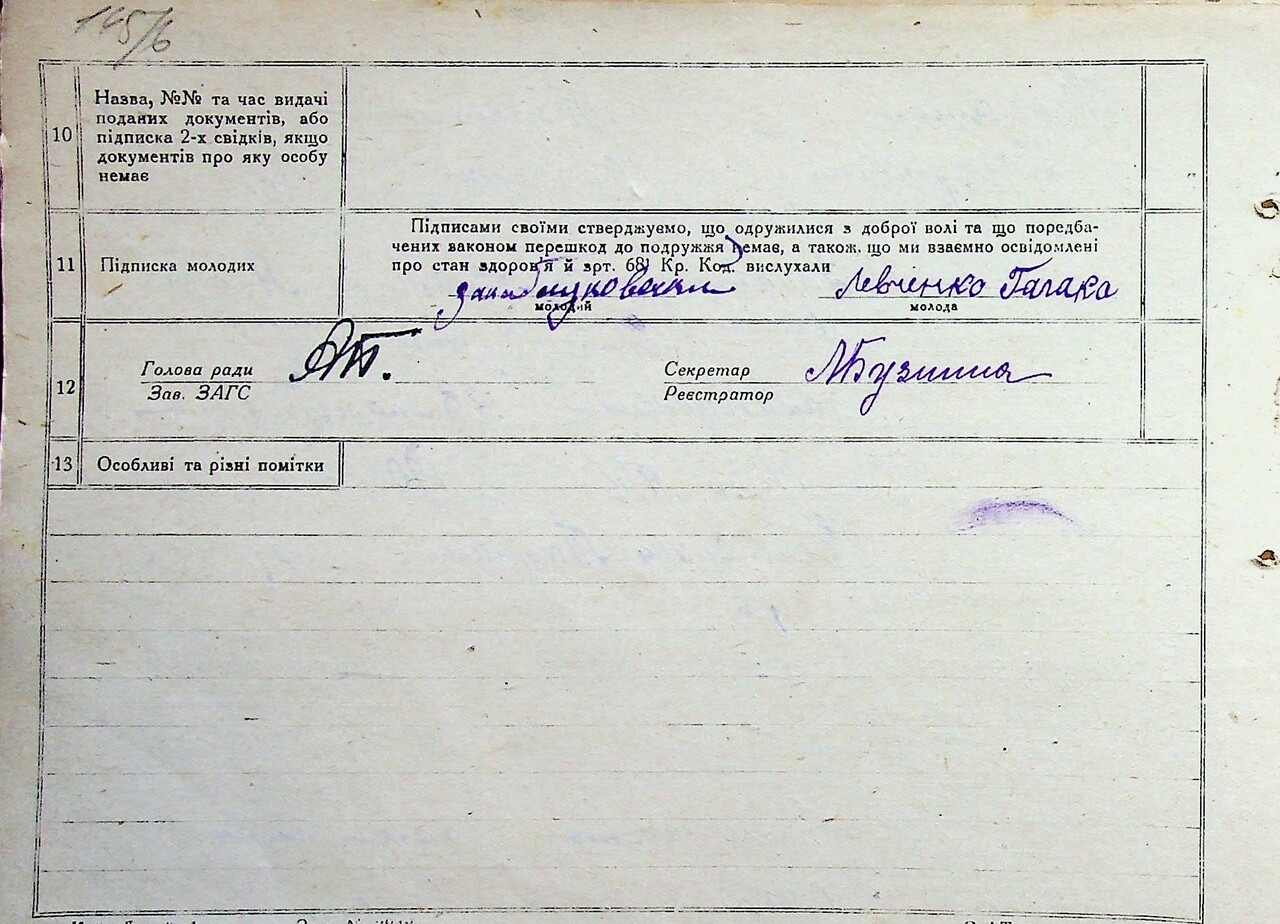 145/6
10
Назва, №№ та час видачі
поданих документів, або
підписка 2-х свідків, якщо
документів про яку особу
немає
11
Підписка молодих
Підписами своїми стверджуємо, що одружилися з доброї волі та що поредба-
чених законом перешкод до подружжя немає, а також, що ми взаємно освідомлені
про стан здоров'я й зрт. 681 Кр. Код. вислухали
Левченко
молодий
молода
12
Голова ради
Зав. ЗАГС
Секретар
Реєстратор
МБузинна
13
Особливі та різні помітки